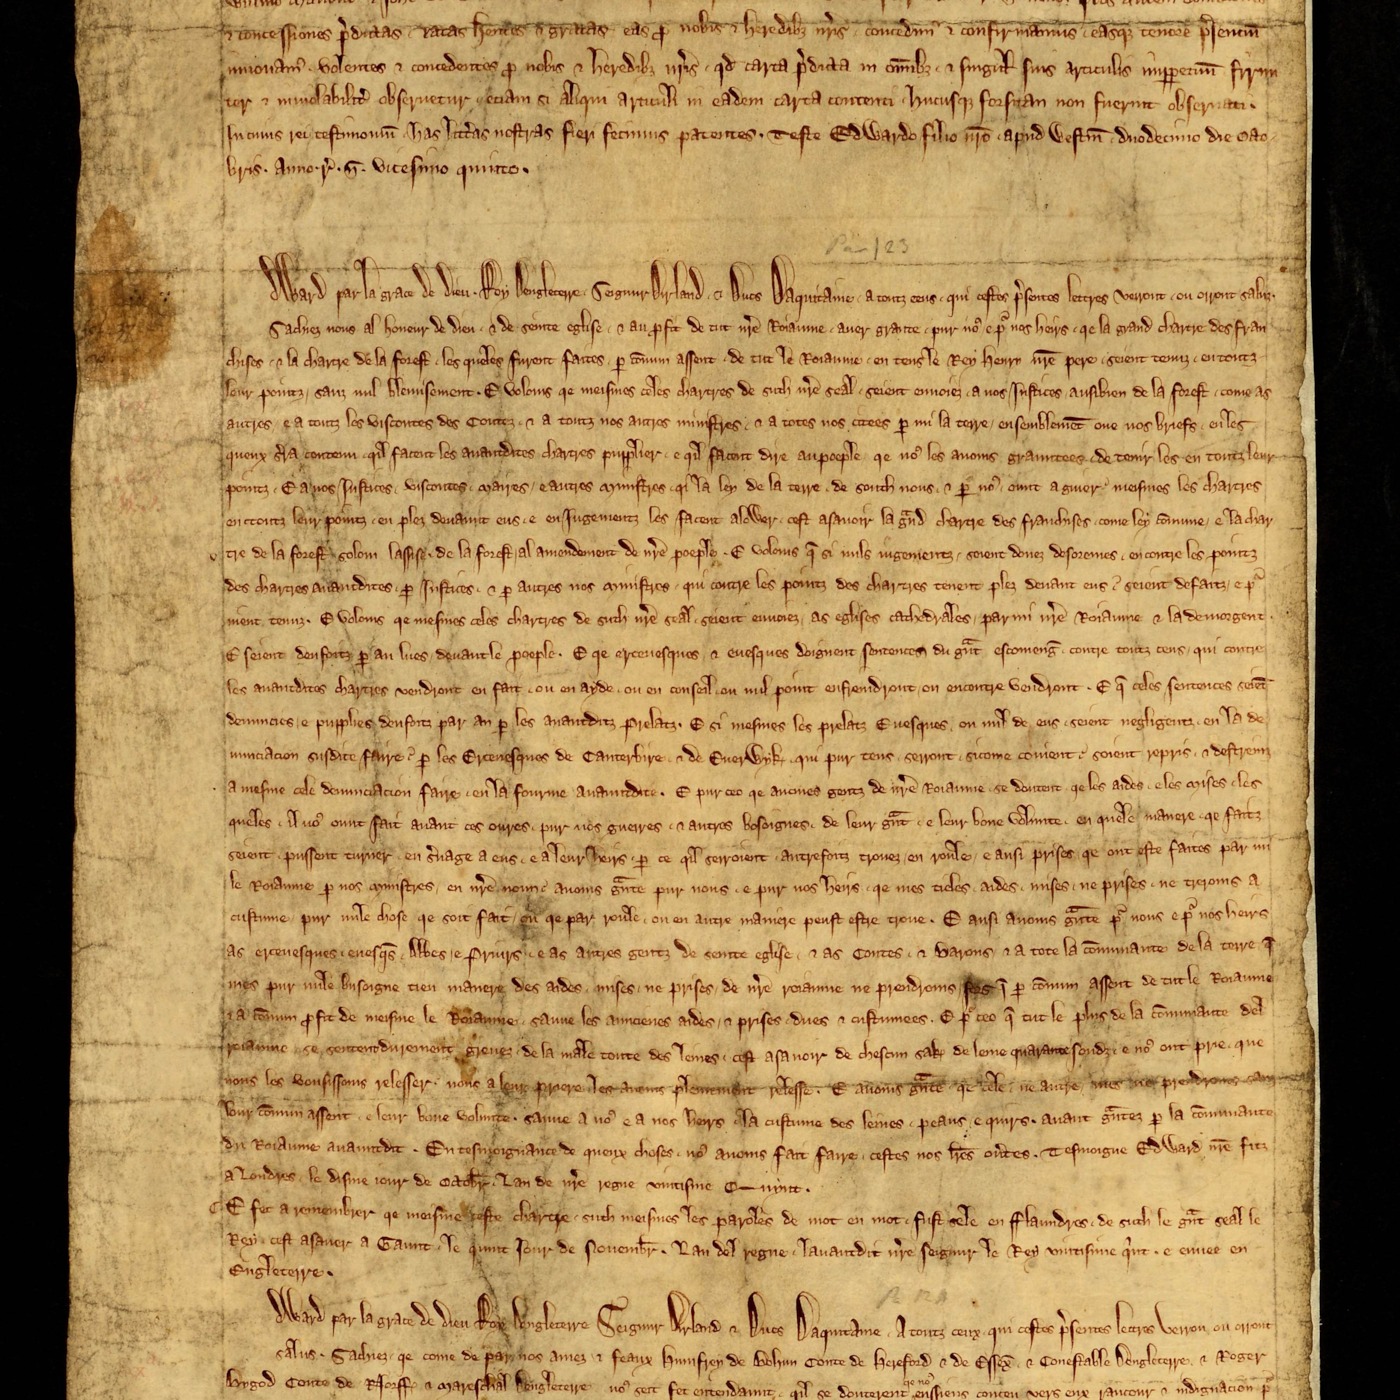 & concessiones p̄dictas . ratas hentes & gratas . eas ꝓ nobis & heredibȝ nr̄is . concedim᷒ & confirmamus . easqȝ tenore p̄sentiū
innouam᷒ . volentes & concedentes ꝓ nobis & heredibȝ nr̄is . qd̄ carta p̄dicta in om̄ibȝ . & singul̄ suis articulis imꝑpetuū firmi
ter & inuiolabilit̄ obseruetur . eciam si aliqui articuli in eadem carta contenti . hucusqȝ forsitan non fuerint obseruati .
In cuius rei testimoniū . has litt̄as nostras fieri fecimus patentes . Teste Edwardo filio nr̄o . apud Westm̄ . duodecimo die Octo
bris . anno . r̄ . n̄ . vicesimo quinto .
Pa 123
Edward par la grace de dieu . Rey Dengleterre . Seignur Dirland . & Ducs Daquitaine . a toutz ceus . qui cestes p̄sentes lettres verront . ou orront saluz .
Sachiez nous al honeur de dieu . & de seinte eglise . & au ꝓfit de tut nr̄e Roiaume . auer grante . pur no᷒ e p᷒ nos heirs . qe la grand chartre des fran
chises . & la chartre de la forest . les queles furent faites . ꝑ cōmun assent . de tut le Roiaume . en tens le Rey Henry nr̄e pere . seient tenuz . en toutz
leur pointz . sanz nul blemisement . E voloms qe meismes celes chartres de suth nr̄e seal . seient enuoiez . a nos Justices ausibien de la forest . come as
autres . e a toutz les viscontes des Contez . & a toutz nos autres ministres . & a totes nos citees ꝑ mi la terre . ensemblemēt oue nos briefs . en les
queux s̄ra contenu . qil facent les auantdites chartres pupplier . e qil facent dire au poeple . qe no᷒ les auoms grauntees . de tenir les en toutz leur
pointz . E a nos Justices . viscontes . maires . e autres ministres . qi la ley de la terre . de south nous . & ꝑ no᷒ . ount a guier . meismes les chartres
en toutz leur pointz . en plez deuaunt eus . e en Jugementz les facent alower . cest asauoir la gnd̄ chartre des franchises . come ley cōmune . e la char
tre de la forest solom lassise . de la forest . al amendement de nr̄e poeple . E voloms q̄ si nuls iugementz . seient donez desoremes . encontre les pointz
des chartres auantdites . ꝑ Justices . & ꝑ autres nos ministres . qui contre les pointz des chartres tenent plez deuant eus . seient defaitz . e p᷒
nient tenuz . E voloms qe mesmes celes chartres de suth nr̄e seal . seient enuoiez . as eglises cathedrales . par mi nr̄e Roiaume & la demorgent .
E seient deufoitz ꝑ an lues . deuant le poeple . E qe ercevesques . & euesques doignent sentences du gn̄t escomeng̃ . contre toutz ceus . qui contre
les auantdites chartres vendront en fait . ou en ayde . ou en conseil . ou nul point enfrendront . ou encontre vendront . E q̄ celes sentences seiēt
denuncies . e pupplies deufoitz par an ꝑ les auantditz prelatz . E si mesmes les prelatz Euesques . ou nul de eus . seient negligentz . en la de
nunciacion susdite faire . ꝑ les Erceuesques de Canterbire . & de Euerwyk . qui pur tens serront . sicome couient . soient repris . & destreinz
a mesme cele denunciacion faire . en la fourme auauntdite . E pur ceo qe aucunes gentz de nr̄e Roiaume . se doutent . qe les aides . e les mises . les
queles . il no᷒ ount fait auant ces oures . pur nos guerres . & autres bosoignes . de leur gn̄t . e leur bone volunte . en quele manere . qe faitz
seient . pussent turner . en s̄uage a eus . e a leur heirs . ꝑ ce qil serroient . autrefoitz trouez . en roule . e ausi prises . qe ont este faites par mi
le Roiaume ꝑ nos ministres . en nr̄e noun . auoms gn̄te pur nous . e pur nos heirs . qe mes tieles . aides . mises . ne prises . ne treroms a
custume . pur nule chose qe soit fait . ou qe par roule . ou en autre maniere peust estre troue . E ausi auoms gn̄te p᷒ nous e p᷒ nos heirs
as erceuesques . euesqs̄ . Abbes . e Priurs . e as autres gentz de seinte eglise . & as Contes . & Barons . & a tote la cōmunaute de la terre q̄
mes pur nule busoigne tieu manere des aides . mises . ne prises . de nr̄e roiaume ne prendroms q̄ ꝑ cōmun assent de tut le Roiaume
& a cōmun ꝓfit de meisme le Roiaume . sauue les auncienes aides . & prises . dues & custumees . E p᷒ ceo q̄ tut le plus de la cōmunaute del
roiaume se sentent durement greuez . de la male toute des leines . cest asauoir de chescun sak de leine quarante soudz . e no᷒ ont prie . que
nous les vousissoms relesser . nous a leur priere les auoms pleinement relesse . E auoms gn̄te . qe cele . ne autre . mes ne prendroms sanz
lour cōmun assent . e leur bone volunte . sauue a no᷒ e a nos heirs . la custume des leines . peaus . e quirs . auant gn̄tez ꝑ la cōmunaute
du Roiaume auauntdit . En tesmoignance de queux choses . no᷒ auoms fait faire . cestes nos lr̄es ou̅tes . Tesmoigne Edward nr̄e fitz
a Londres . le disme iour de Octobr̄ . Lan de nr̄e regne vintisme Quint .
E fet a remembrer qe meisme ceste chartre . suth meismes les paroles de mot en mot . fust sele en Flaundres . de suth le gn̄t seal le
Rey . cest asauer a Gaunt . le quint Jour de Nouembr̄ . Lan del regne . lauantdit nr̄e seignur le Rey vintisme q̇nt . e enuee en
Engleterre .
Edward par la grace de dieu Roy Dengleterre Seignur Dirland & Ducs Daquitaine . A toutz ceux . qui cestes p̄sentes lectres verrou ou orront
salus . Sachiez . qe come de par nos amez & feaux Humfrey de Bohun Conte de Hereford & de Essex̄ & Conestable Dengleterre . & Roger
Bygod Conte de Norff & Mareschal Dengleterre no᷒ seit fet entendaunt . qil se douterent qe no᷒ eussiens conceu vers eux rancour & indignacion ꝑ